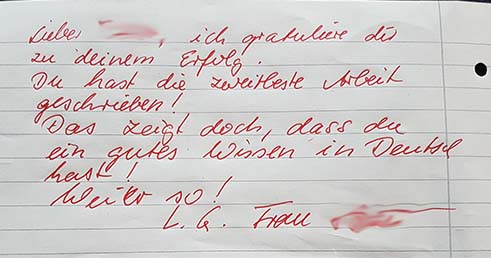 Lieber , ich gratuliere dir
zu deinem Erfolg.
Du hast die zweitbeste Arbeit
geschrieben!
Das zeigt doch, dass du
ein gutes Wissen in Deutsch
hast!
Weiter so!
L. G. Frau